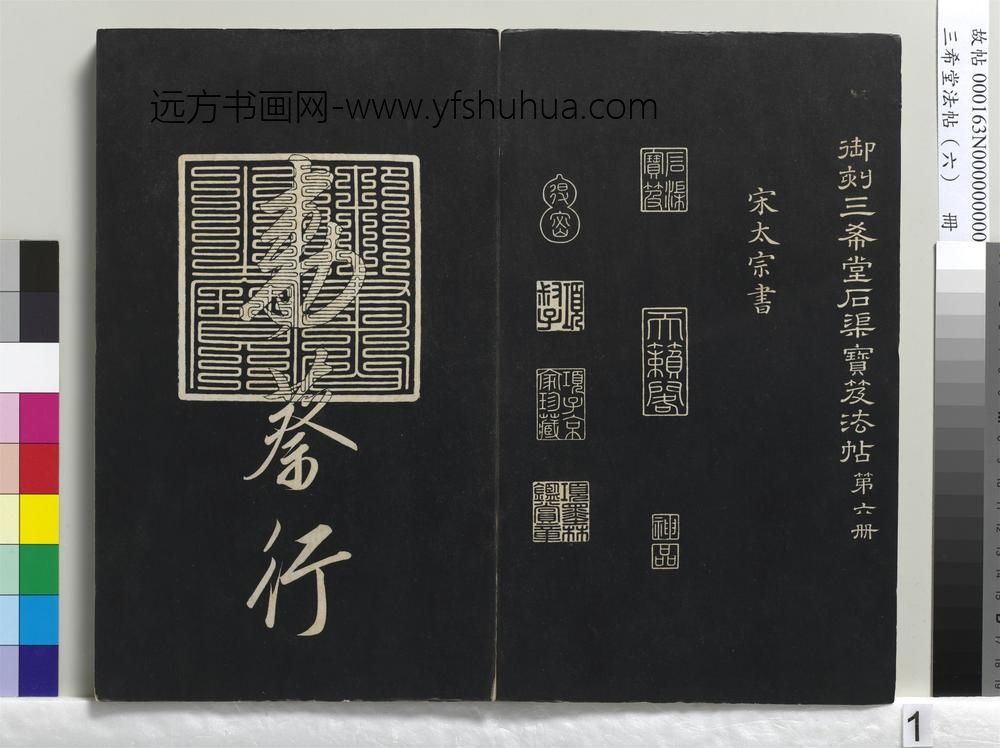 故帖 000163N000000000
三希堂法帖（六） 冊
远方书画网-www.yfshuhua.com
御刻三希堂石渠寶笈法帖第六册
宋太宗書
石渠寶笈
天籟閣
神品
得密
項叔子
項子京家珍藏
項墨林鑑賞章
敕蔡行
1